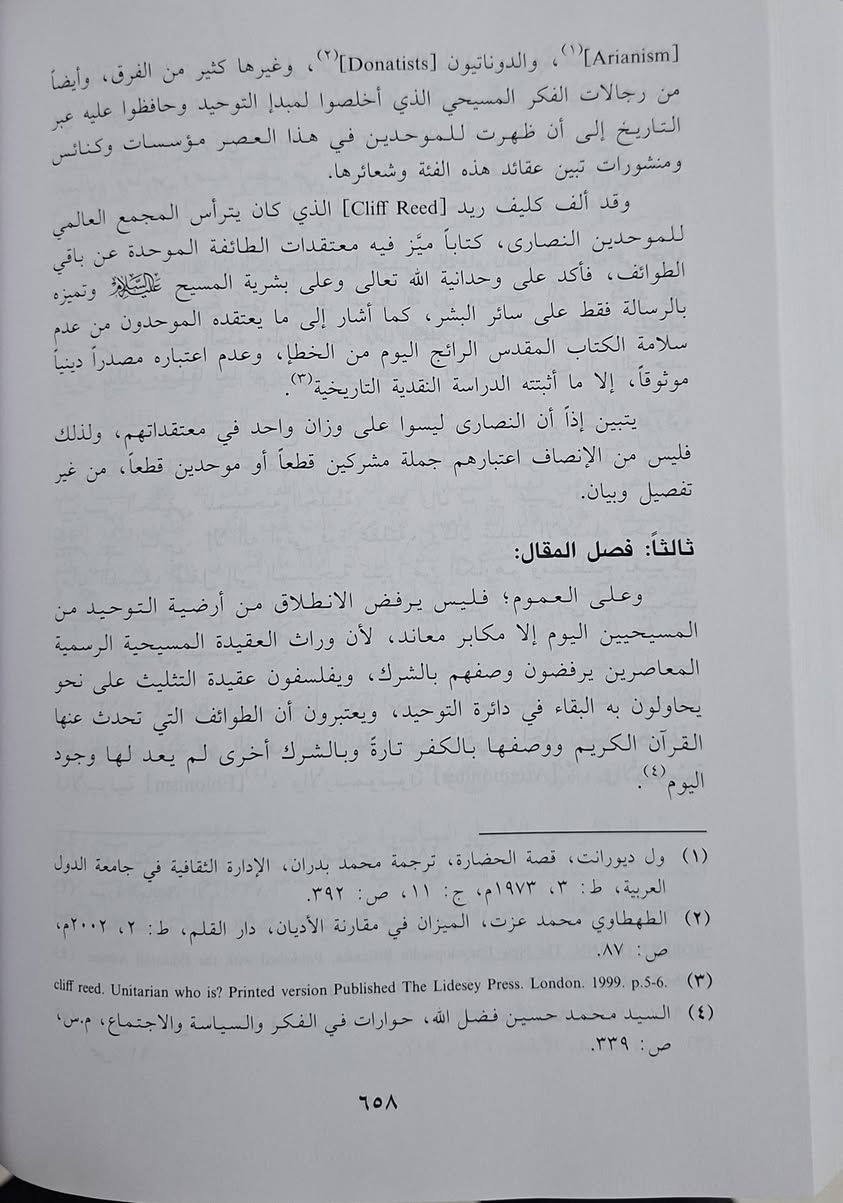 [Arianism]⁽¹⁾، والدوناتيون [Donatists]⁽²⁾، وغيرها كثير من الفرق، وأيضاً
من رجالات الفكر المسيحي الذي أخلصوا لمبدإ التوحيد وحافظوا عليه عبر
التاريخ إلى أن ظهرت للموحدين في هذا العصر مؤسسات وكنائس
ومنشورات تبين عقائد هذه الفئة وشعائرها.
وقد ألف كليف ريد [Cliff Reed] الذي كان يترأس المجمع العالمي
للموحدين النصارى، كتاباً ميَّز فيه معتقدات الطائفة الموحدة عن باقي
الطوائف، فأكد على وحدانية الله تعالى وعلى بشرية المسيح عليه السلام وتميزه
بالرسالة فقط على سائر البشر، كما أشار إلى ما يعتقده الموحدون من عدم
سلامة الكتاب المقدس الرائج اليوم من الخطإ، وعدم اعتباره مصدراً دينياً
موثوقاً، إلا ما أثبتته الدراسة النقدية التاريخية⁽³⁾.
يتبين إذاً أن النصارى ليسوا على وزان واحد في معتقداتهم، ولذلك
فليس من الإنصاف اعتبارهم جملة مشركين قطعاً أو موحدين قطعاً، من غير
تفصيل وبيان.
ثالثاً: فصل المقال:
وعلى العموم؛ فليس يرفض الانطلاق من أرضية التوحيد من
المسيحيين اليوم إلا مكابر معاند، لأن وراث العقيدة المسيحية الرسمية
المعاصرين يرفضون وصفهم بالشرك، ويفلسفون عقيدة التثليث على نحو
يحاولون به البقاء في دائرة التوحيد، ويعتبرون أن الطوائف التي تحدث عنها
القرآن الكريم ووصفها بالكفر تارةً وبالشرك أخرى لم يعد لها وجود
اليوم⁽⁴⁾.
(١) ول ديورانت، قصة الحضارة، ترجمة محمد بدران، الإدارة الثقافية في جامعة الدول
العربية، ط: ٣، ١٩٧٣م، ج: ١١، ص: ٣٩٢.
(٢) الطهطاوي محمد عزت، الميزان في مقارنة الأديان، دار القلم، ط: ٢، ٢٠٠٢م،
ص: ٨٧.
(٣) cliff reed. Unitarian who is? Printed version Published The Lidesey Press. London. 1999. p.5-6.
(٤) السيد محمد حسين فضل الله، حوارات في الفكر والسياسة والاجتماع، م.س،
ص: ٣٣٩.
٦٥٨